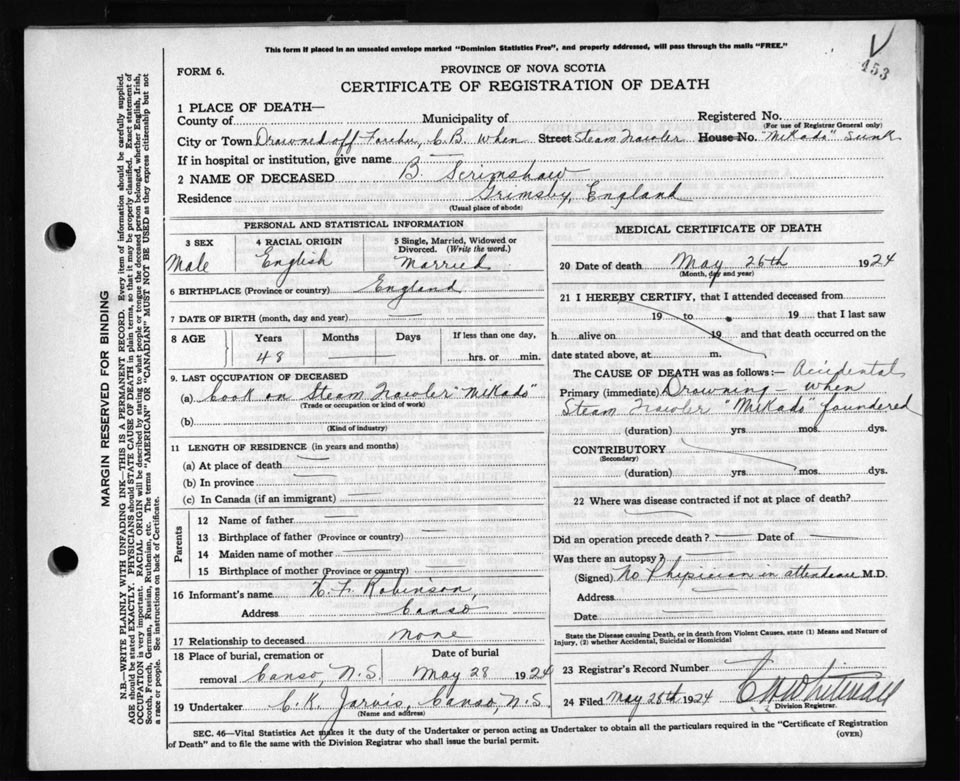 This form if placed in an unsealed envelope marked "Dominion Statistics Free", and properly addressed, will pass through the mails "FREE."
153
FORM 6.
PROVINCE OF NOVA SCOTIA
CERTIFICATE OF REGISTRATION OF DEATH
1 PLACE OF DEATH—
County of Municipality of Registered No.
(For use of Registrar General only)
City or Town Drowned off C.B. when Street Steam Trawler House No. "Mikado" sunk
If in hospital or institution, give name —
2 NAME OF DECEASED B. Scrimshaw
Residence Grimsby, England
(Usual place of abode)
PERSONAL AND STATISTICAL INFORMATION
3 SEX
Male
4 RACIAL ORIGIN
English
5 Single, Married, Widowed or Divorced. (Write the word.)
Married
6 BIRTHPLACE (Province or country) England
7 DATE OF BIRTH (month, day and year) —
8 AGE Years Months Days If less than one day,
48 — — hrs. or min.
9. LAST OCCUPATION OF DECEASED
(a) Cook on Steam Trawler "Mikado"
(Trade or occupation or kind of work)
(b)
(Kind of industry)
11 LENGTH OF RESIDENCE (in years and months)
(a) At place of death —
(b) In province —
(c) In Canada (if an immigrant) —
Parents
12 Name of father —
13 Birthplace of father (Province or country) —
14 Maiden name of mother —
15 Birthplace of mother (Province or country) —
16 Informant's name, Robinson,
Address Canso
17 Relationship to deceased none
18 Place of burial, cremation or removal Canso, N.S. Date of burial May 28 1924
19 Undertaker C.K. Jarvis, Canso, N.S.
(Name and address)
MEDICAL CERTIFICATE OF DEATH
20 Date of death May 26th 1924
(Month, day and year)
21 I HEREBY CERTIFY, that I attended deceased from
19 to 19 that I last saw
h alive on 19 and that death occurred on the
date stated above, at m.
The CAUSE OF DEATH was as follows:— Accidental
Primary (immediate) Drowning — when
Steam Trawler "Mikado" foundered
(duration) yrs. mos. dys.
CONTRIBUTORY
(Secondary)
(duration) yrs. mos. dys.
22 Where was disease contracted if not at place of death?
Did an operation precede death? — Date of —
Was there an autopsy? —
(Signed) No Physician in attendance M.D.
Address —
Date —
State the Disease causing Death, or in death from Violent Causes, state (1) Means and Nature of Injury, (2) whether Accidental, Suicidal or Homicidal
23 Registrar's Record Number
24 Filed May 28th 1924
Division Registrar.
SEC. 46—Vital Statistics Act makes it the duty of the Undertaker or person acting as Undertaker to obtain all the particulars required in the "Certificate of Registration
of Death" and to file the same with the Division Registrar who shall issue the burial permit.
(OVER)
MARGIN RESERVED FOR BINDING
N.B.—WRITE PLAINLY WITH UNFADING INK—THIS IS A PERMANENT RECORD. Every item of information should be carefully supplied.
AGE should be stated EXACTLY. PHYSICIANS should STATE CAUSE OF DEATH in plain terms, so that it may be properly classified. Exact statement of
OCCUPATION is very important. RACIAL ORIGIN will be described by stating to what people or tongue the deceased person belonged, whether English, Irish,
Scotch, French, German, Russian, Ruthenian, etc. The terms "AMERICAN" OR "CANADIAN" MUST NOT BE USED as they express citizenship but not
a race or people. See instructions on back of Certificate.